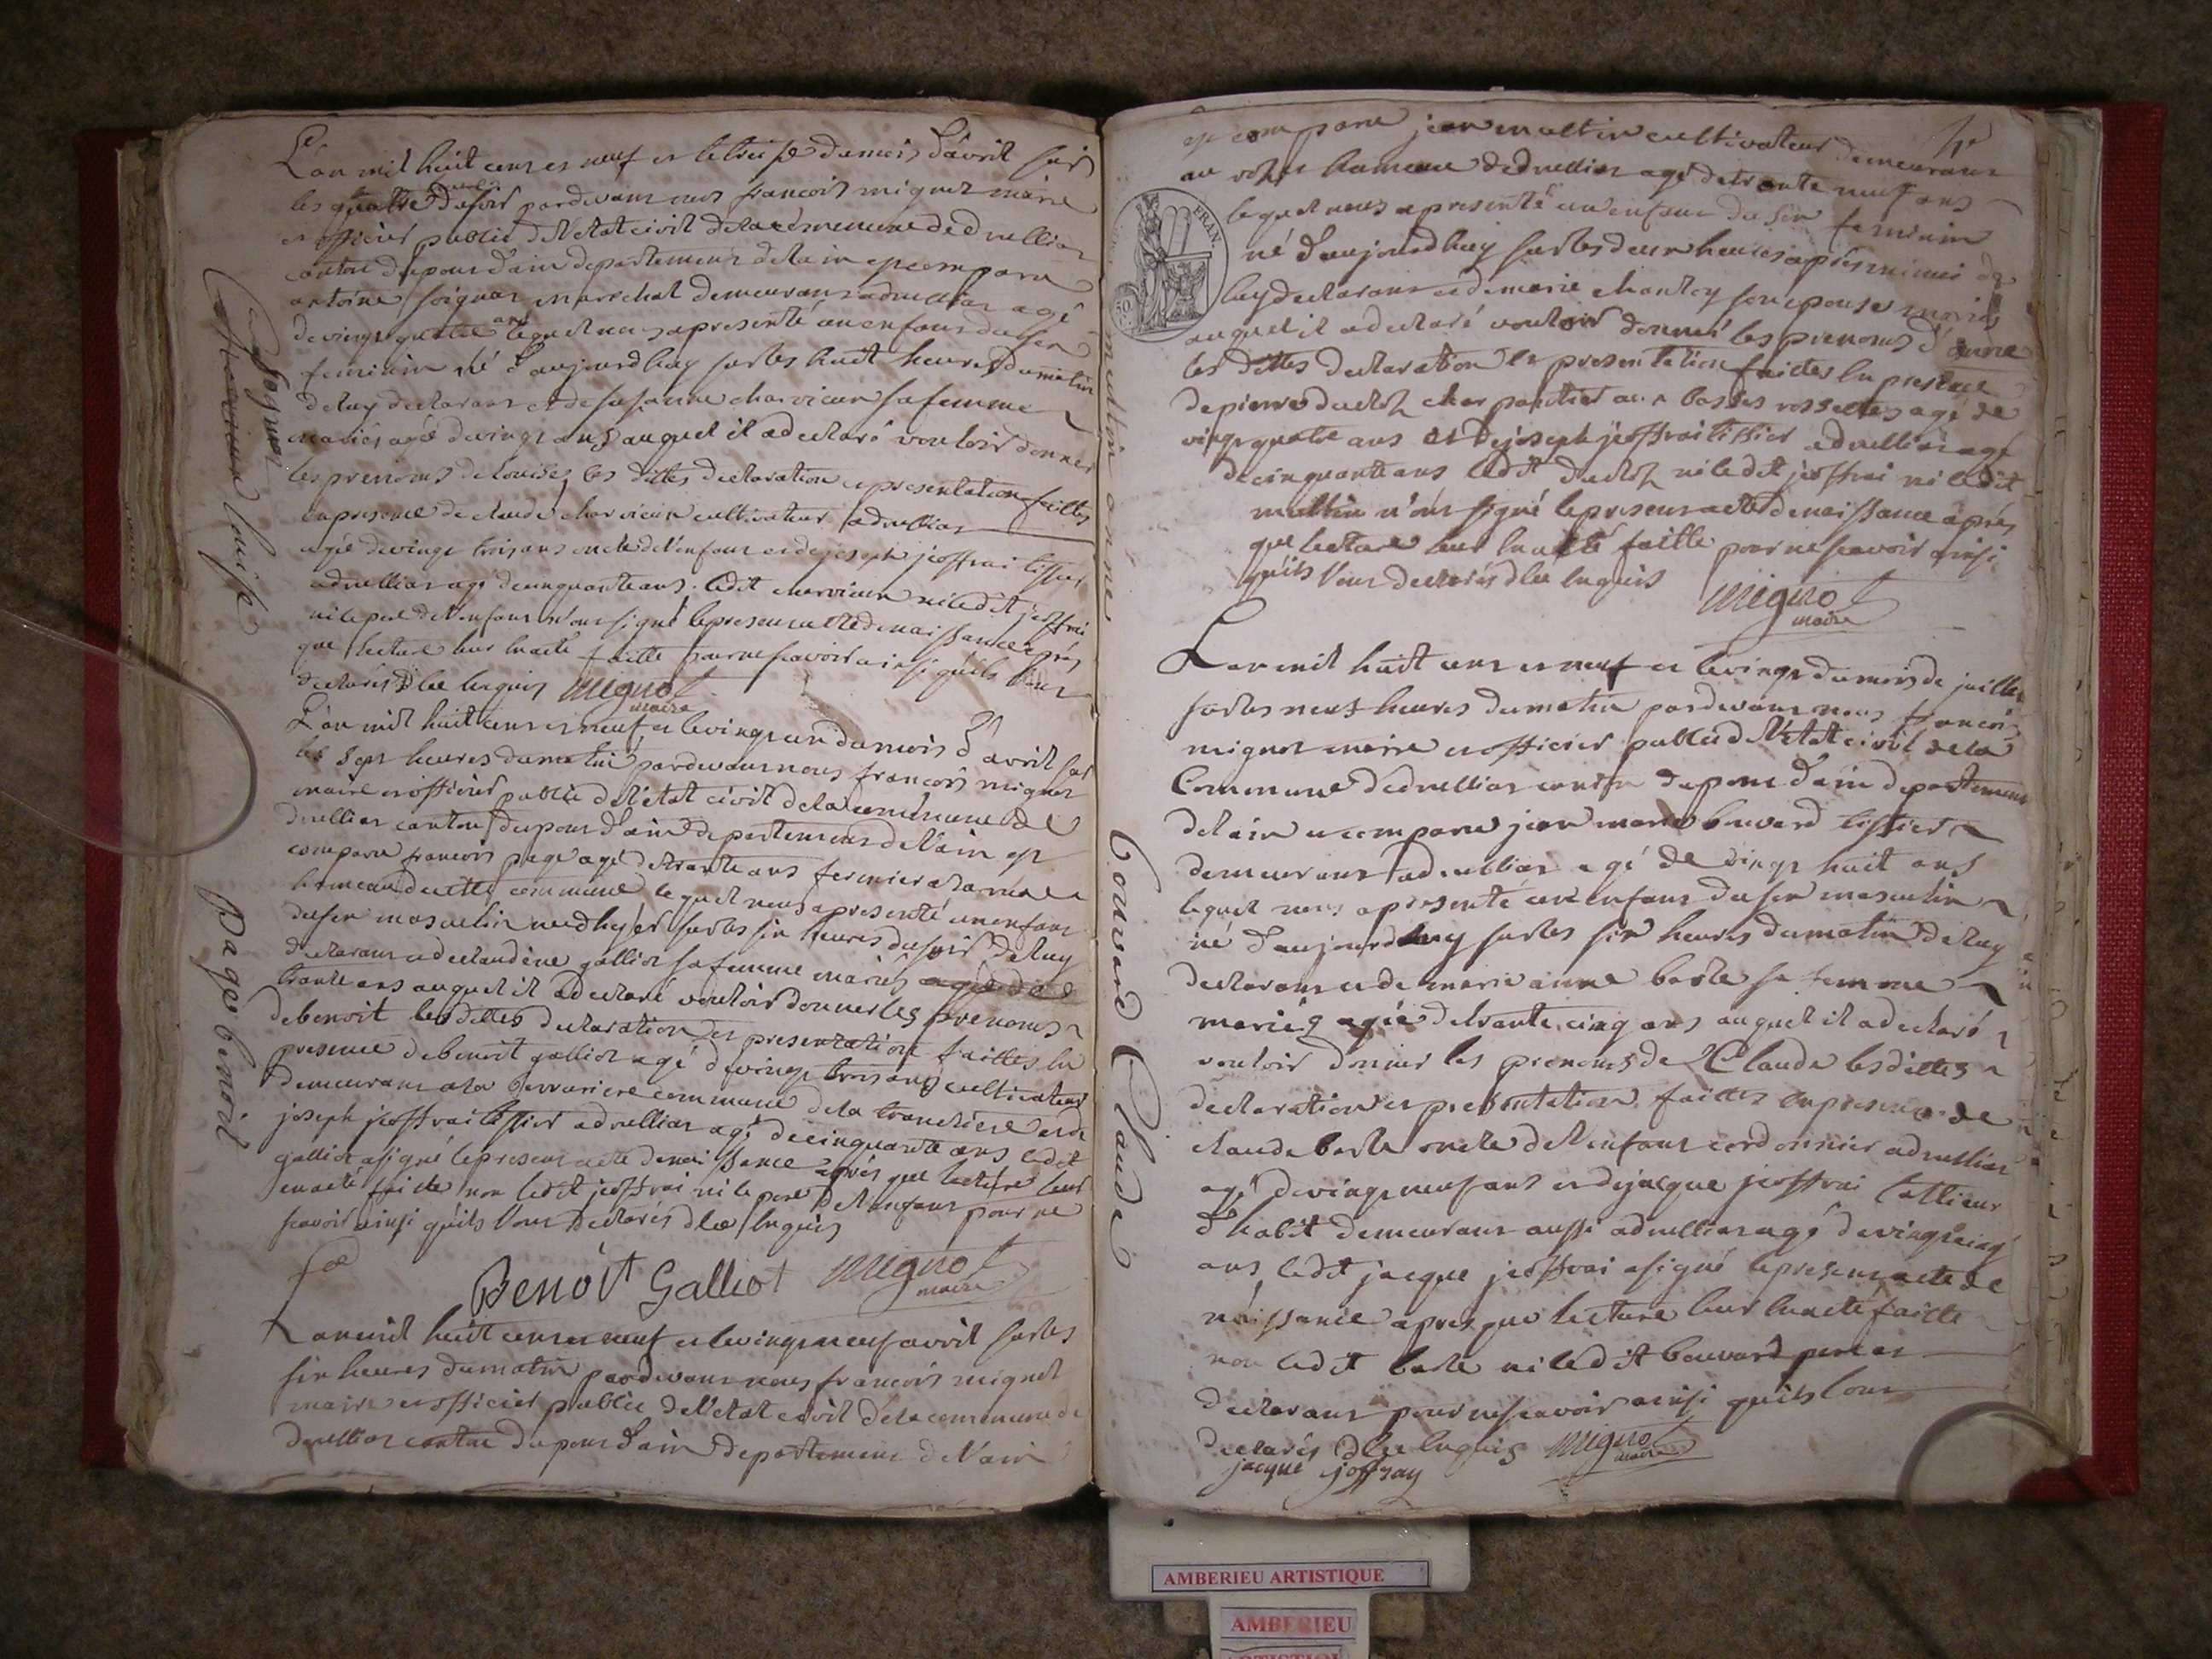 L'an mil huit cens et neuf et le treise du mois d'avril sur
les quatre du soir pardevant nous francois mignot maire
et officier public de l'etat civil de la commune de druillia
canton du pont d'ain departement de l'ain est comparu
antoine soignat marechal demeurant a druillias agé
de vingt quatre ans lequel nous a presenté un enfant du sex
feminin né d'aujourdhuy sur les huit heures du matin
de luy declarant et de susanne charvieux sa femme
mariés agée de vingt ans auquel il a declaré vouloir donner
les prenoms de louise les dittes declaration et presentation faittes
en presence de claude charvieux cultivateur a druillias
agée de vingt trois ans oncle de l'enfant et de joseph jeoffrai tissier
a druillias agé de cinquante ans ledit charvieux ni ledit jeoffrai
ni le pere de l'enfant n'ont signé le present acte de naissance aprés
que lecture leur en a eté faitte pour ne scavoir ainsi qu'ils l'ont
declarés d lee enquis mignot
maire
soignat
louise
L'an mil huit cens et neuf et le vingt un du mois d'avril sur
les sept heures du matin pardevant nous francois mignot
maire et officier public de l'etat civil de la commune de
druillias canton du pont d'ain departement de l'ain est
comparu francois page agé de trante ans fermier a
hameau de cette commune lequel nous a presenté un enfant
du sex masculin né d'hyer sur les six heures du soir de luy
declarant et de claudine galliot sa femme mariés agée de
trante ans auquel il a declaré vouloir donner les prenoms
de benoit les dittes declaration et presentation faittes en
presence de benoit galliot agé de vingt trois ans cultivateur
demeurant a la commune de la tranclière et de
joseph jeoffrai tissier a druillias agé de cinquante ans ledit
galliot a signé le present acte de naissance aprés que lecture leur
en a eté faitte non ledit jeoffrai ni le pere de l'enfant pour ne
scavoir ainsi qu'ils l'ont declarés d lee enquis
Benoit Galliot mignot
maire
page benoit
L'an mil huit cens et neuf et le vingt neuf avril sur les
six heures du matin pardevant nous francois mignot
maire et officier public de l'etat civil de la commune de
druillias canton du pont d'ain departement de l'ain
est comparu jean multin cultivateur demeurant
au hameau de druillias agé de trante neuf ans
lequel nous a presenté un enfant du sex feminin
FRAN.
50
né d'aujourdhuy sur les deux heures aprés minuit de
luy declarant et de marie chanley son epouse mariés
auquel il a declaré vouloir donner les prenoms d'anne
les dittes declaration et presentation faittes en presence
de pierre charpantier aux basses agé de
vingt quatre ans et de joseph jeoffrai tissier a druillias agé
de cinquante ans ledit ni ledit jeoffrai ni ledit
multin n'ont signé le present acte de naissance aprés
que lecture leur en a eté faitte pour ne scavoir ainsi
qu'ils l'ont declarés d lee enquis mignot
maire
multin anne
L'an mil huit cens et neuf et le vingt du mois de juillet
sur les neuf heures du matin pardevant nous francois
mignot maire et officier public de l'etat civil de la
Commune de druillias canton du pont d'ain departement
de l'ain est comparu jean marie bouvard tissier
demeurant a druillias agé de vingt huit ans
lequel nous a presenté un enfant du sex masculin
né d'aujourdhuy sur les six heures du matin de luy
declarant et de marie anne barle sa femme
mariés agée de trante cinq ans auquel il a declaré
vouloir donner les prenoms de Claude les dittes
declaration et presentation faittes en presence de
claude barle oncle de l'enfant cordonnier a druillias
agé de vingt neuf ans et de jacque jeoffrai tallieur
d'habit demeurant aussi a druillias agé de vingt cinq
ans ledit jacque jeoffrai a signé le present acte de
naissance apres que lecture leur en a eté faitte
non ledit barle ni ledit bouvard pere et
declarant pour ne scavoir ainsi qu'ils l'ont
declarés d lee enquis mignot
maire
jacque joffray
bouvard Claude
AMBERIEU ARTISTIQUE
AMBERIEU
ARTISTIQUE